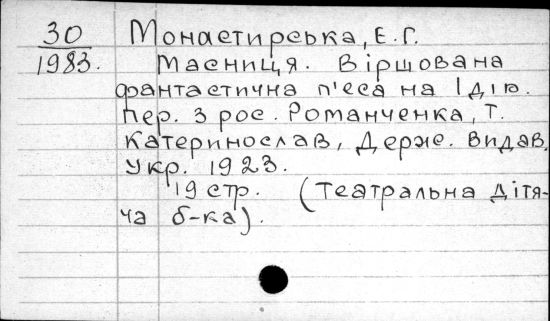 30 Монастирська, Е. Г.
1983. Масниця. Віршована
фантастична п'еса на 1 дію.
Пер. з рос. Романченка, Т.
Катеринослав, Держ. Видав.
Укр. 1923.
19 стр. (Театральна дітя-
ча б-ка).